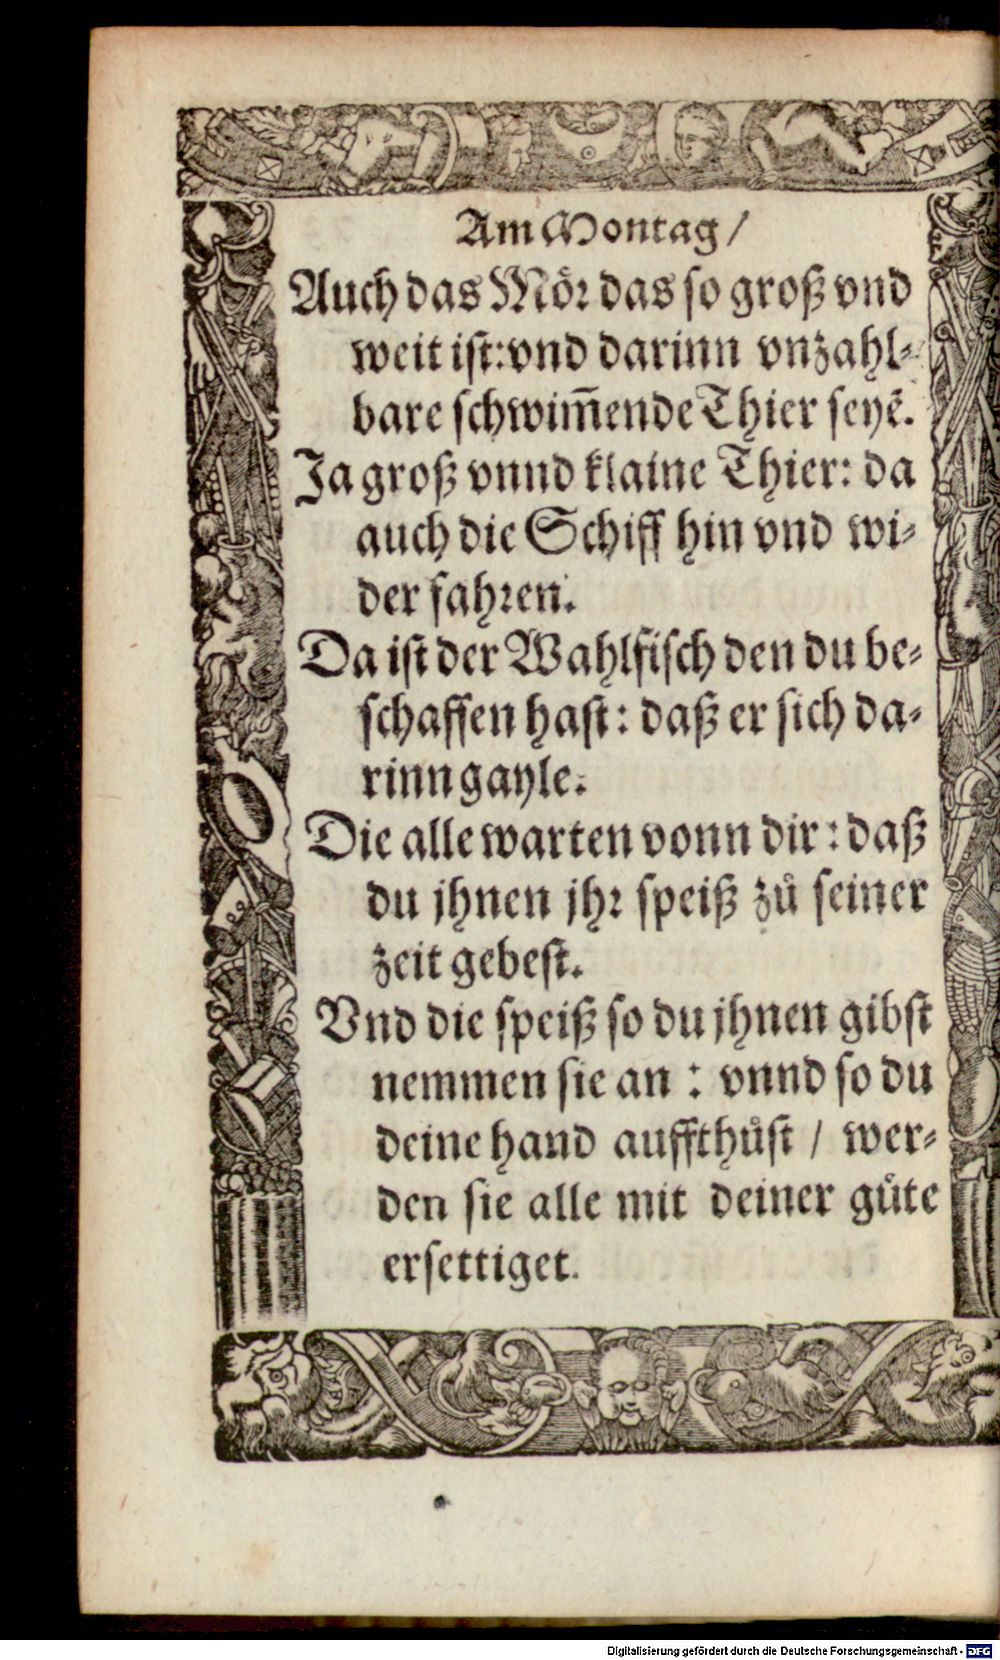 Am Montag /
Auch das Möꝛ das ſo groß vnd
weit iſt: vnd darinn vnzahl⸗
bare ſchwim̄ende Thier ſeyē.
Ja groß vnnd klaine Thier: da
auch die Schiff hin vnd wi⸗
der fahꝛen.
Da iſt der Wahlfiſch den du be⸗
ſchaffen haſt: daß er ſich da⸗
rinn gayle.
Die alle warten vonn dir: daß
du jhnen jhꝛ ſpeiß zů ſeiner
zeit gebeſt.
Vnd die ſpeiß ſo du jhnen gibſt
nemmen ſie an : vnnd ſo du
deine hand auffthůſt / wer⸗
den ſie alle mit deiner guͤte
erſettiget.
Digitalisierung gefördert durch die Deutsche Forschungsgemeinschaft - DFG